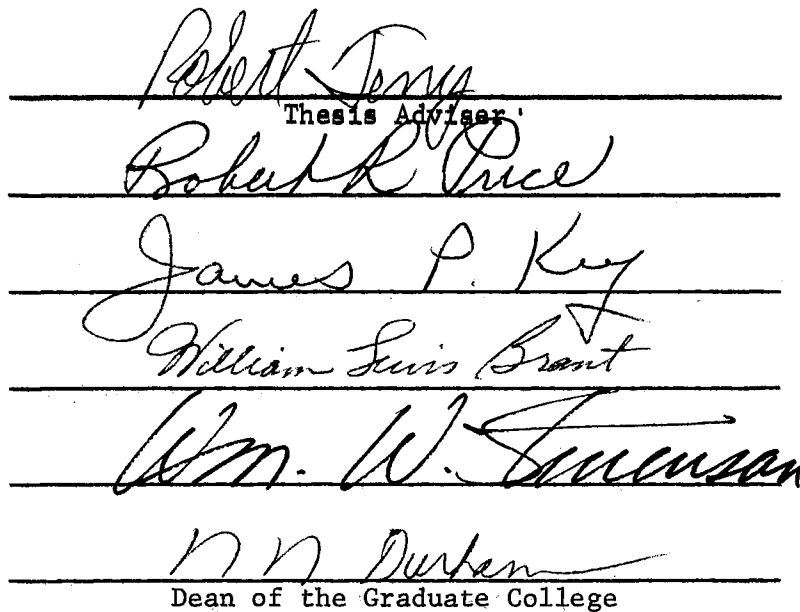 Robert Terry
Thesis Adviser
Robert R Price
James P. Key
William Lewis Brant
Wm. W. Stevenson
N N Durham
Dean of the Graduate College